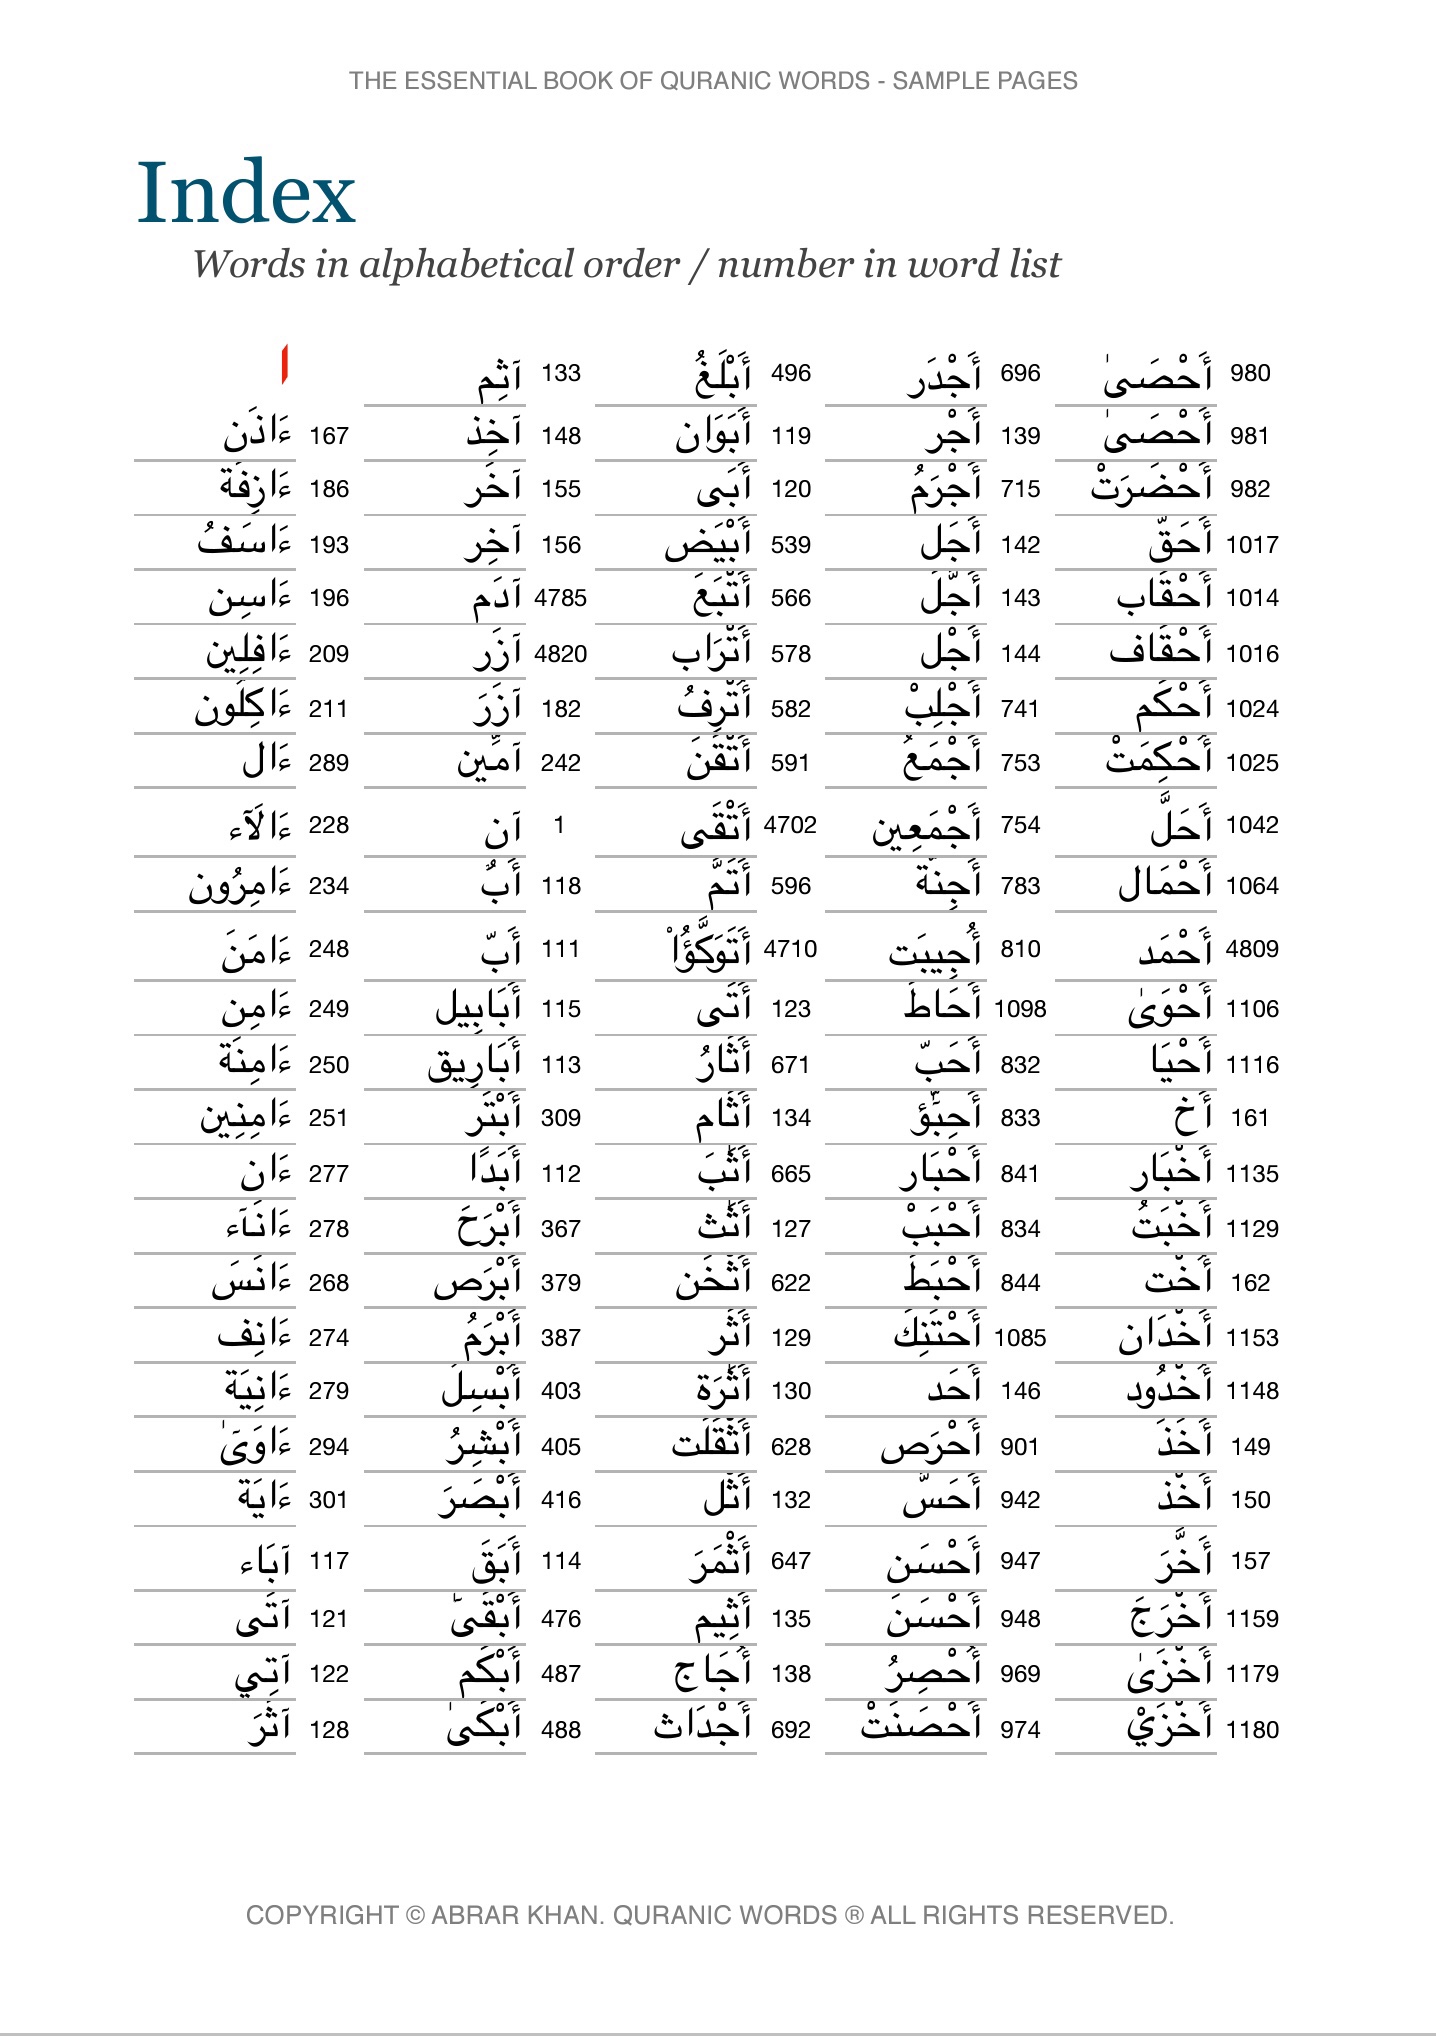 THE ESSENTIAL BOOK OF QURANIC WORDS - SAMPLE PAGES
Index
Words in alphabetical order / number in word list
ا آثِم 133 أَبْلَغُ 496 أَجْدَر 696 أَحْصَىٰ 980
ءَاذَن 167 آخِذ 148 أَبَوَان 119 أَجْر 139 أَحْصَىٰ 981
ءَازِفَة 186 آخَر 155 أَبَى 120 أَجْرَمُ 715 أَحْضَرَتْ 982
ءَاسَفُ 193 آخِر 156 أَبْيَض 539 أَجَل 142 أَحَقّ 1017
ءَاسِن 196 آدَم 4785 أَتْبَعَ 566 أَجَّلَ 143 أَحْقَاب 1014
ءَافِلِين 209 آزَر 4820 أَتْرَاب 578 أَجْل 144 أَحْقَاف 1016
ءَاكِلُون 211 آزَرَ 182 أَتْرِفُ 582 أَجْلِبْ 741 أَحْكَم 1024
ءَال 289 آمِّين 242 أَتْقَنَ 591 أَجْمَعُ 753 أَحْكِمَتْ 1025
ءَالَآء 228 آن 1 أَتْقَى 4702 أَجْمَعِين 754 أَحَلَّ 1042
ءَامِرُون 234 أَبٌ 118 أَتَمَّ 596 أَجِنَّة 783 أَحْمَال 1064
ءَامَنَ 248 أَبّ 111 أَتَوَكَّؤُاْ 4710 أُجِيبَت 810 أَحْمَد 4809
ءَامِن 249 أَبَابِيل 115 أَتَى 123 أَحَاطَ 1098 أَحْوَىٰ 1106
ءَامِنَة 250 أَبَارِيق 113 أَثَارُ 671 أَحَبّ 832 أَحْيَا 1116
ءَامِنِين 251 أَبْتَر 309 أَثَام 134 أَحِبَّؤ 833 أَخ 161
ءَان 277 أَبَدًا 112 أَثَٰبَ 665 أَحْبَار 841 أَخْبَار 1135
ءَانَآء 278 أَبْرَحَ 367 أَثَٰث 127 أَحْبَبْ 834 أَخْبَتُ 1129
ءَانَسَ 268 أَبْرَص 379 أَثْخَن 622 أَحْبَطَ 844 أُخْت 162
ءَانِف 274 أَبْرَمُ 387 أَثَر 129 أَحْتَنِكَ 1085 أَخْدَان 1153
ءَانِيَة 279 أَبْسِلَ 403 أَثَٰرَة 130 أَحَد 146 أَخْدُود 1148
ءَاوَىٰٓ 294 أَبْشِرُ 405 أَثْقَلَت 628 أَحْرَص 901 أَخَذَ 149
ءَايَة 301 أَبْصَرَ 416 أَثْل 132 أَحَسَّ 942 أَخْذ 150
آبَاء 117 أَبَقَ 114 أَثْمَرَ 647 أَحْسَن 947 أَخَّرَ 157
آتَى 121 أَبْقَىٰٓ 476 أَثِيم 135 أَحْسَنَ 948 أَخْرَجَ 1159
آتِي 122 أَبْكَم 487 أُجَاج 138 أُحْصِرُ 969 أَخْزَىٰ 1179
آثَرَ 128 أَبْكَىٰ 488 أَجْدَاث 692 أَحْصَنَتْ 974 أَخْزَيْ 1180
COPYRIGHT © ABRAR KHAN. QURANIC WORDS ® ALL RIGHTS RESERVED.